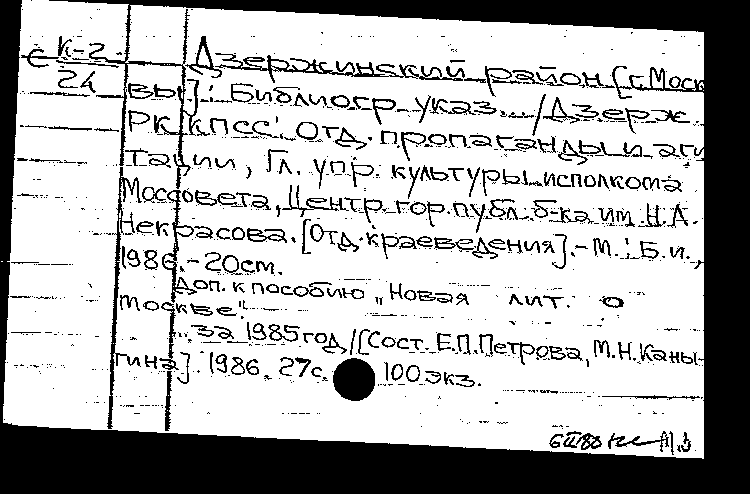 Є К-2 Дзержинский район [г. Моск
24 вы]: Библиогр. указ... / Дзерж.
РК КПСС. Отд. пропаганды и аги
тации, Гл. упр. культуры исполкома
Моссовета, Центр. гор. публ. б-ка им. Н.А.
Некрасова. [Отд. краеведения]. - М.: Б.и.,
1986. - 20см.
Доп. к пособию „Новая лит. о
Москве".
...за 1985 год / [Сост. Е.П.Петрова, М.Н.Каны-
гина]. 1986. 27с. 100 экз.